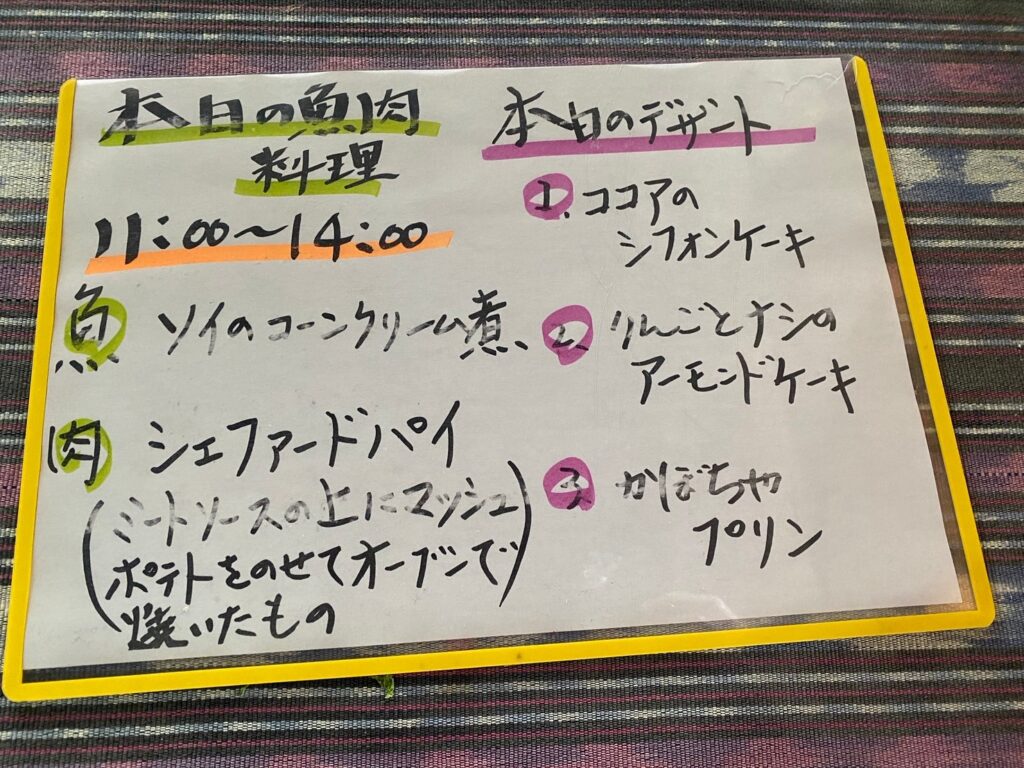 本日の魚肉
料理
11:00〜14:00
魚 ソイのコーンクリーム煮
肉 シェファードパイ
(ミートソースの上にマッシュ
ポテトをのせてオーブンで
焼いたもの)
本日のデザート
1、ココアの
シフォンケーキ
2、りんごとナシの
アーモンドケーキ
3、かぼちゃ
プリン